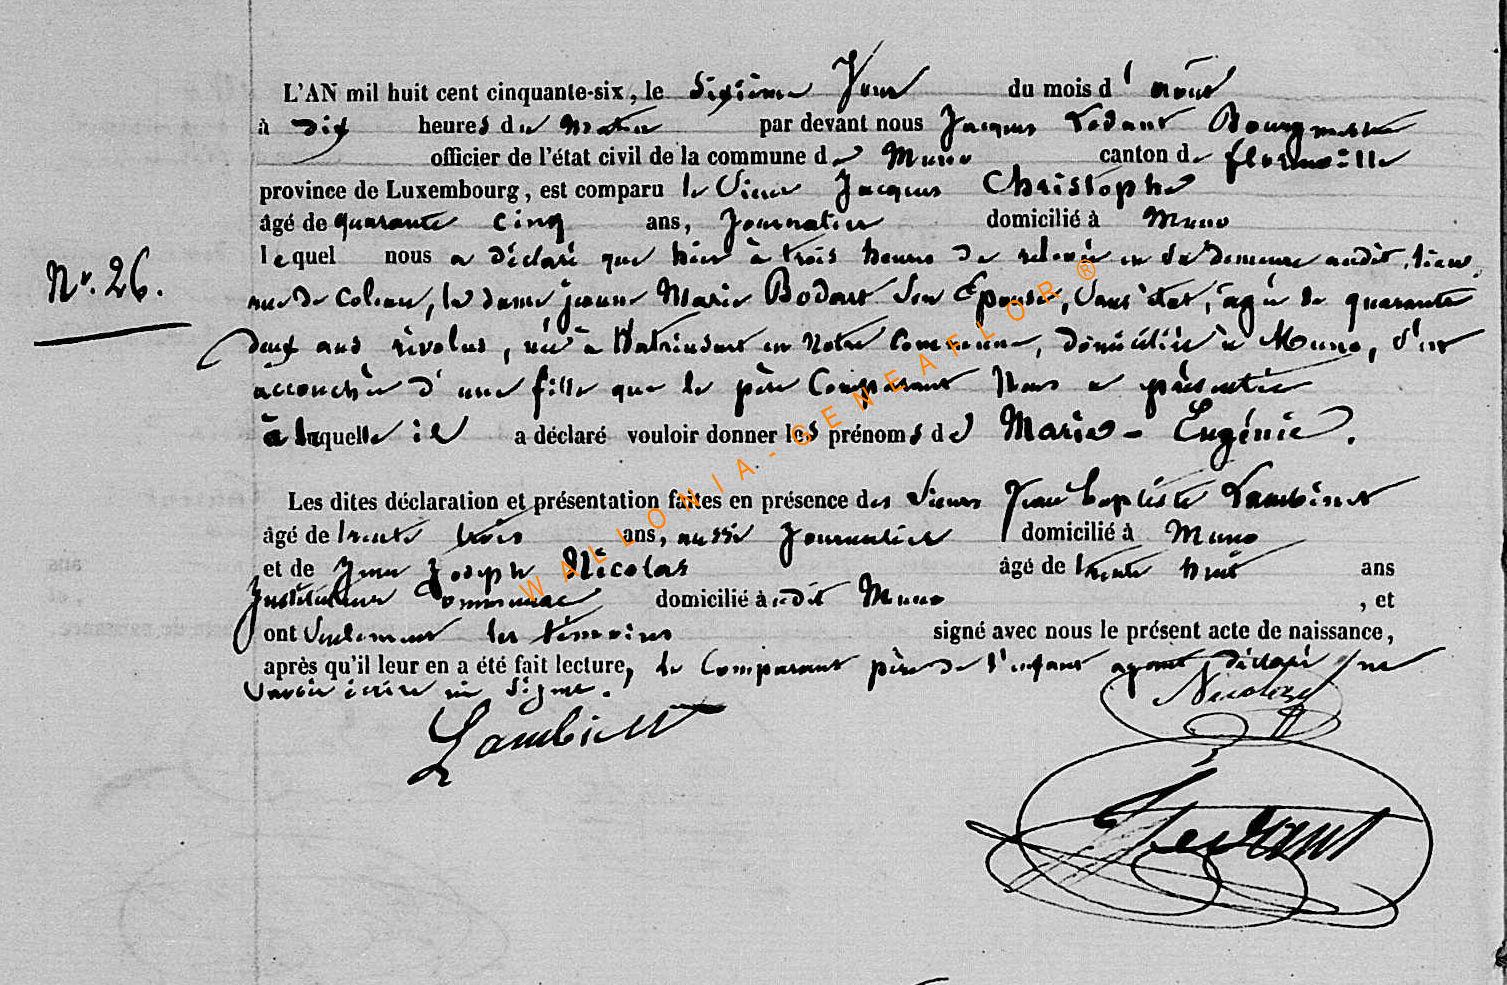 L'AN mil huit cent cinquante-six, le Sixième Jour du mois d'août
à dix heures du Matin par devant nous Jacques Bourgmestre
officier de l'état civil de la commune de Muno canton de florenville
province de Luxembourg, est comparu le Sieur Jacques Christophe
âgé de quarante cinq ans, Journalier domicilié à Muno
lequel nous a déclaré que hier à trois heures de relevée en sa demeure audit lieu,
N°. 26.
rue de, la dame jeanne Marie Bodart son Epouse, Sans état, âgée de quarante
deux ans révolus, née à Watrinsart en Notre Commune, domiciliée à Muno, s'est
accouchée d'une fille que le père Comparant Nous a présentée
à laquelle il a déclaré vouloir donner les prénoms de Marie - Eugénie.
Les dites déclaration et présentation faites en présence des Sieurs Jean baptiste Lambinet
âgé de trente trois ans, aussi Journalier domicilié à Muno
et de Jean Joseph Nicolas âgé de trente huit ans
Instituteur Communal domicilié à udit Muno, et
ont Seulement les témoins signé avec nous le présent acte de naissance,
après qu'il leur en a été fait lecture, le Comparant père de l'enfant ayant déclaré ne
Savoir écrire ni Signer.
Nicolas
Lambinet
WALLONIA-GENEAFLOR®